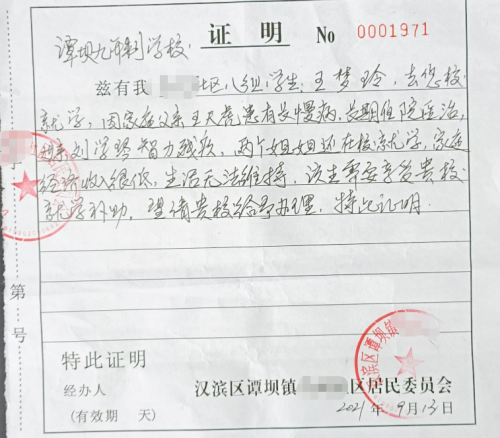 证明 No 0001971
谭坝九年制学校:
兹有我社区八组学生:王梦玲,去您校
就学,因家庭父亲王天虎患有长慢病,长期住院医治,
母亲刘学琴智力残疾,两个姐姐还在校就学,家庭
经济收入很低,生活无法维持,该生需要享受贵校
就学补助,望请贵校给予办理,特此证明.
字
第
号
特此证明
经办人 汉滨区谭坝镇 区居民委员会
(有效期 天) 2021年9月13日
汉滨区谭坝镇